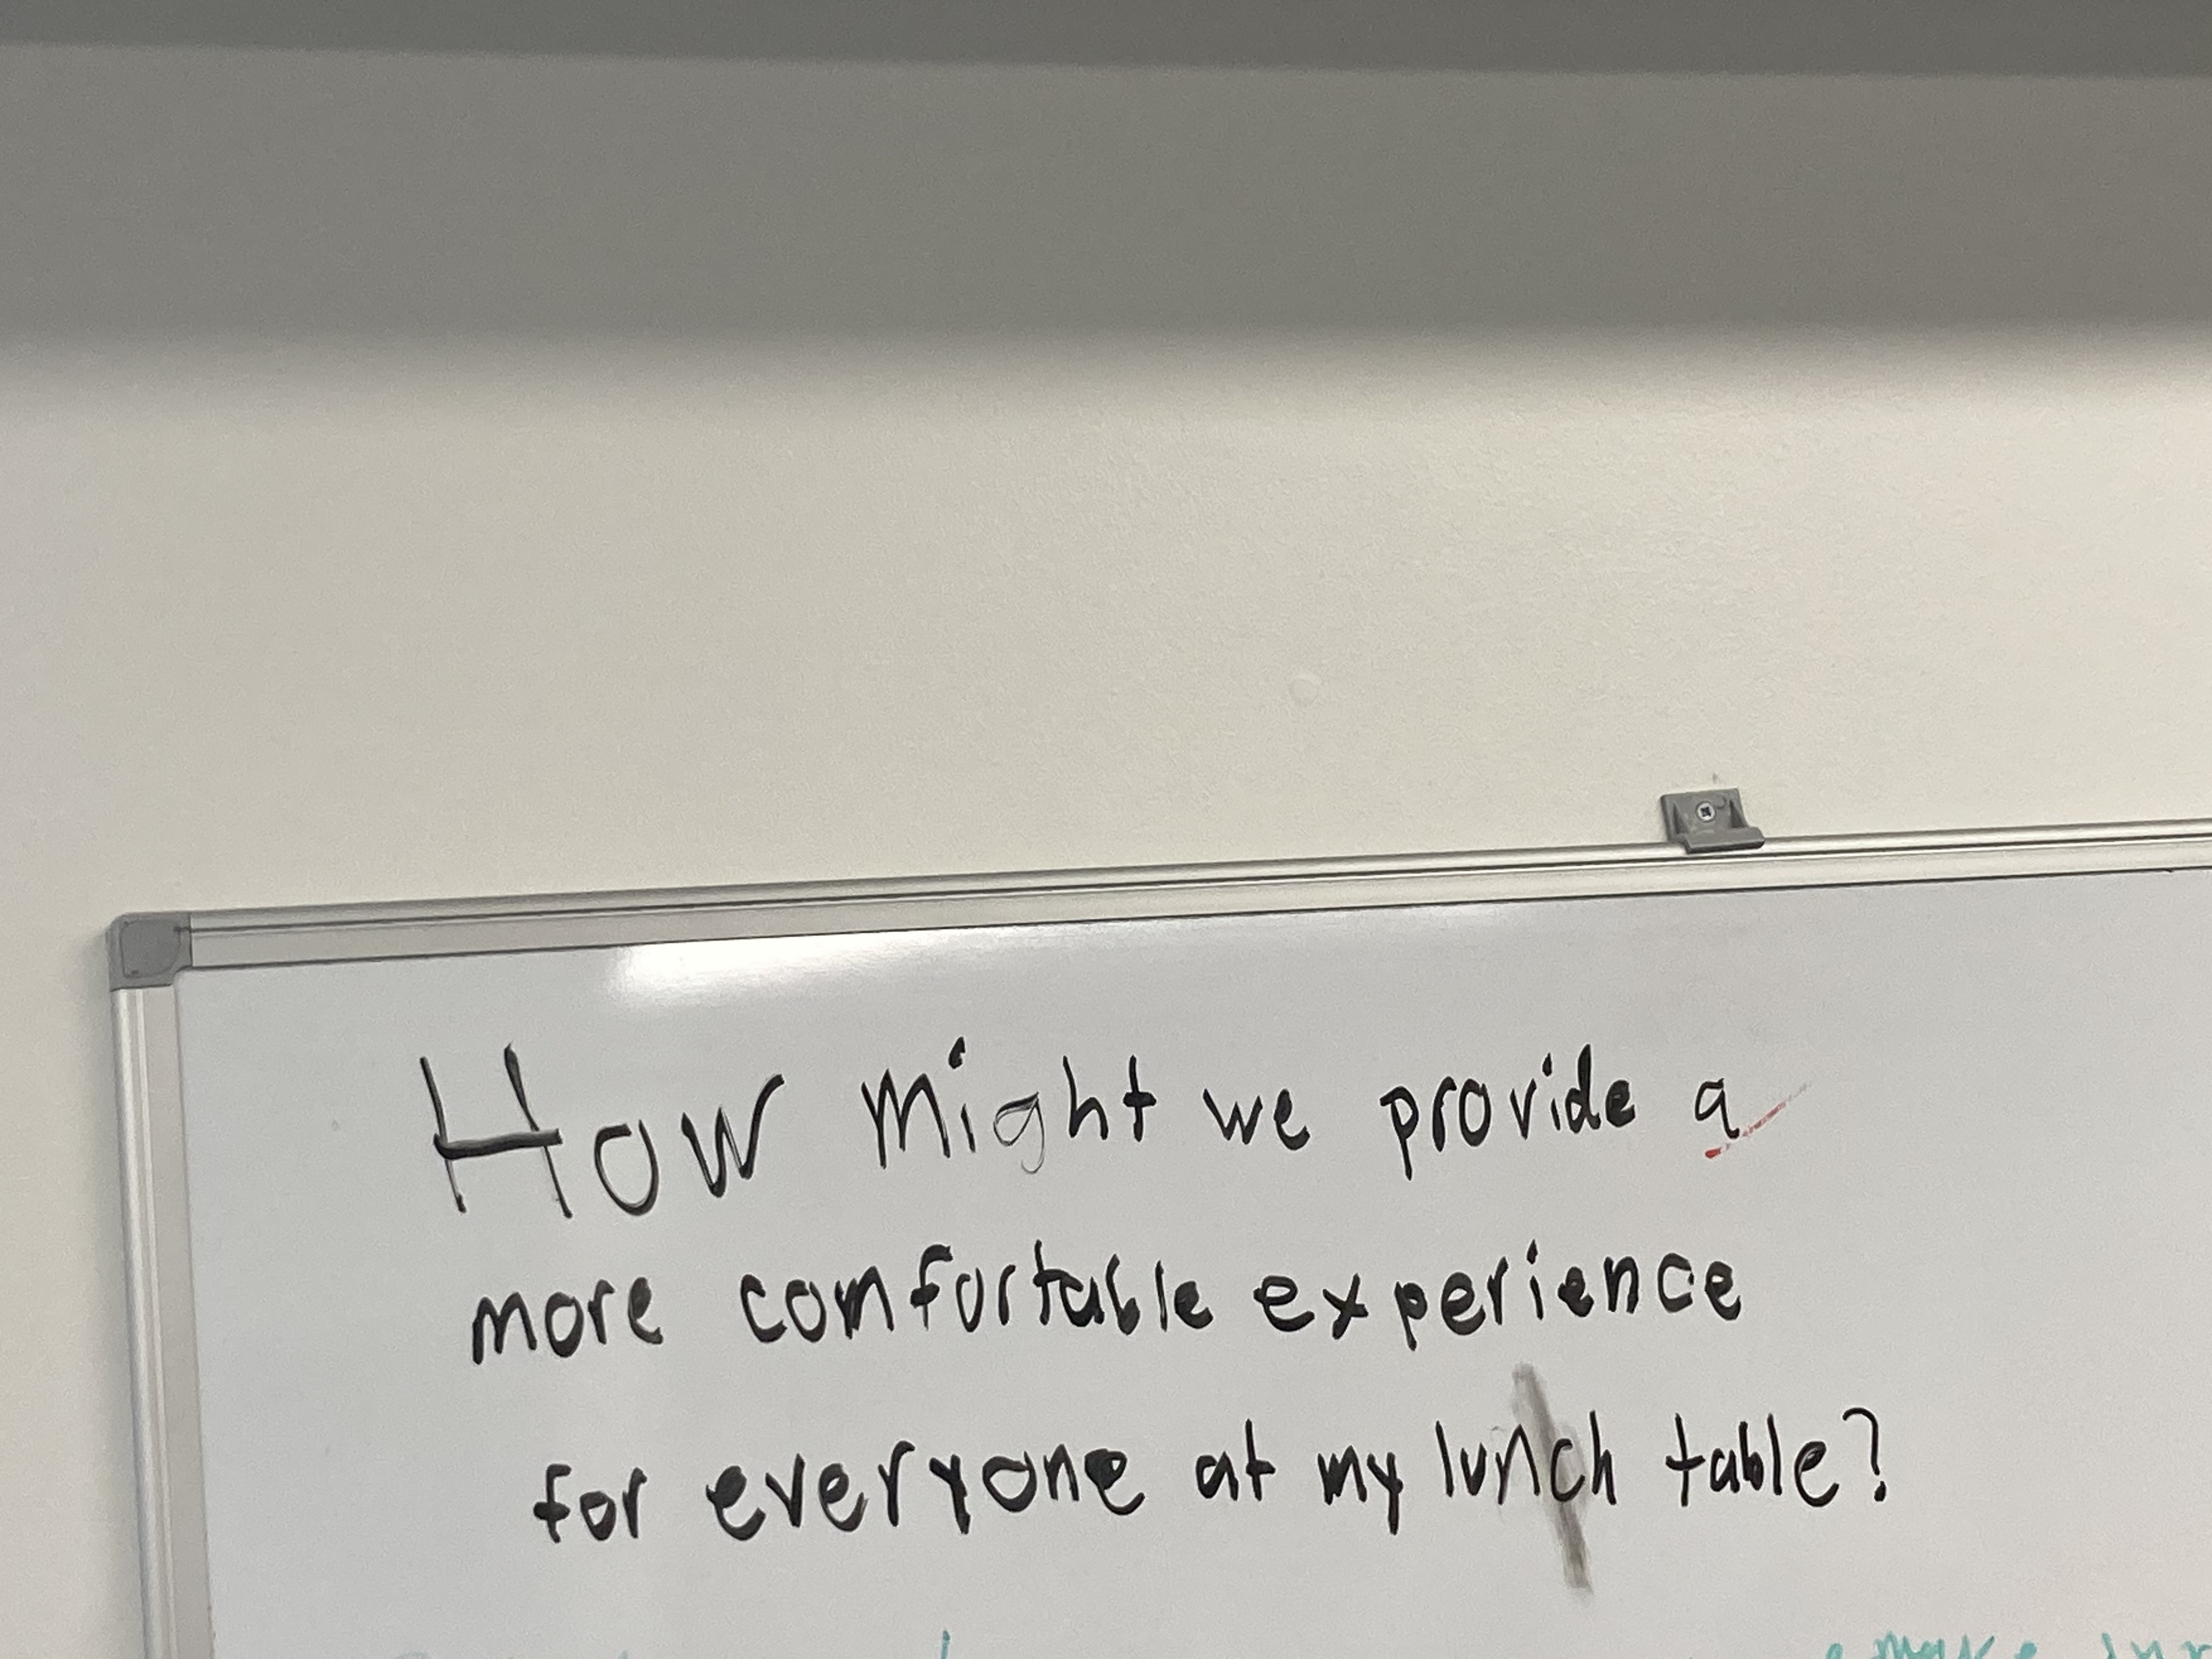 How might we provide a
more comfortable experience
for everyone at my lunch table?
make